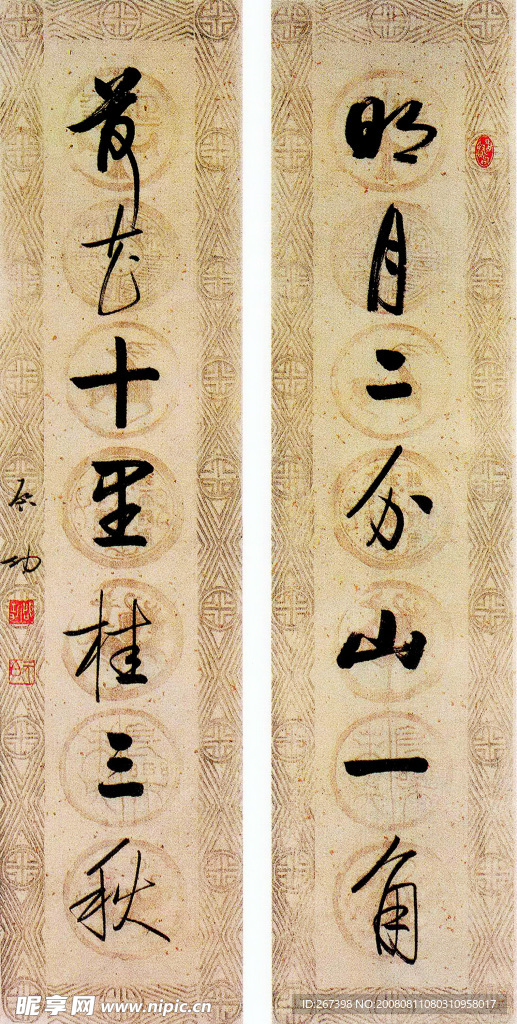 明月二分山一角
荷花十里桂三秋
启功
昵享网 www.nipic.cn
ID:267398 NO:20080811080310958017